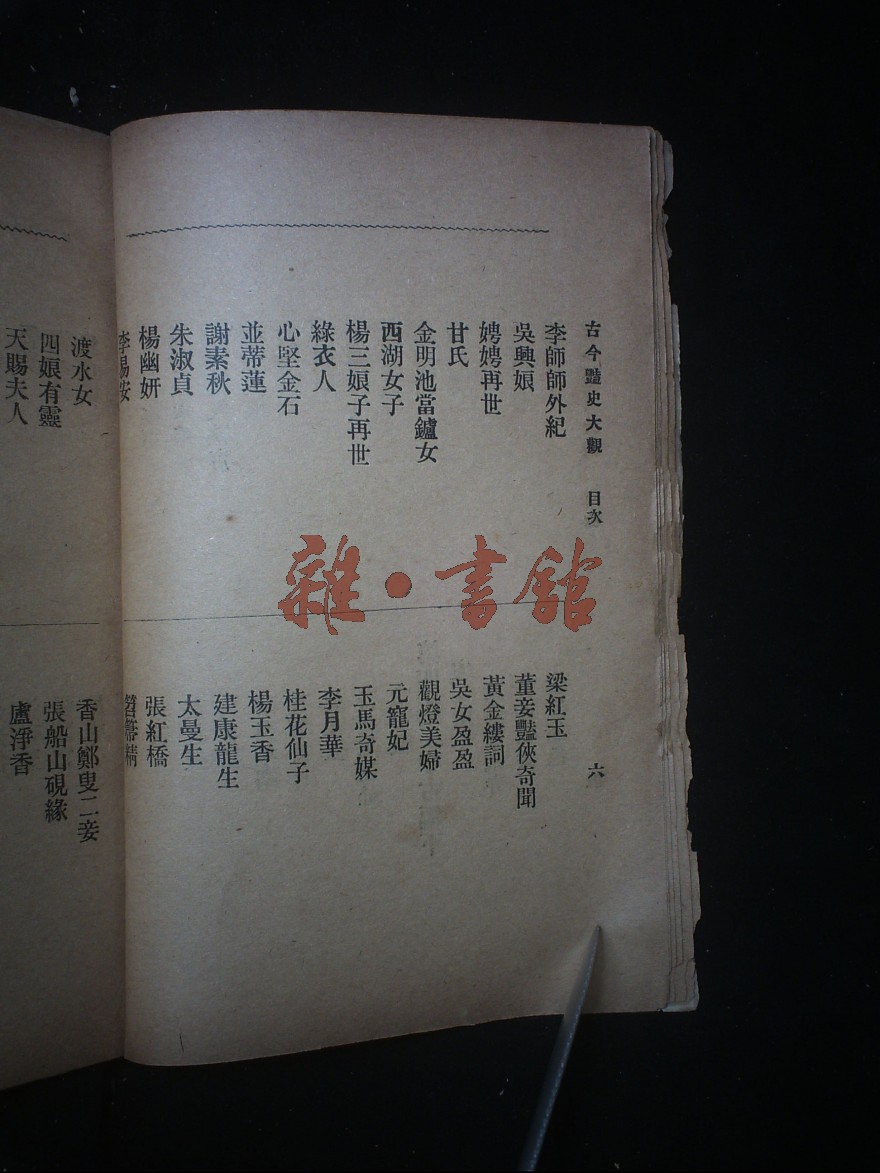 古今豔史大觀 目次 六
李師師外紀
吳興娘
娉娉再世
甘氏
金明池當鑪女
西湖女子
楊三娘子再世
綠衣人
心堅金石
並蒂蓮
謝素秋
朱淑貞
楊幽妍
梁紅玉
董妾豔俠奇聞
黃金縷詞
吳女盈盈
觀燈美婦
元寵妃
玉馬奇媒
李月華
桂花仙子
楊玉香
建康龍生
太曼生
張紅橋
渡水女
四娘有靈
天賜夫人
香山鄭叟二妾
張船山硯緣
盧淨香
雜·書館